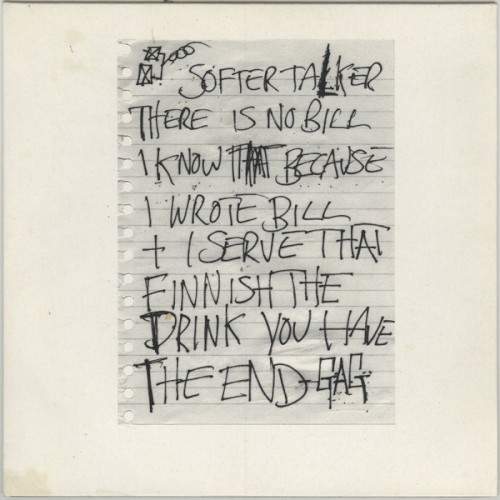 SOFTER TALKER
THERE IS NO BILL
I KNOW THAT BECAUSE
I WROTE BILL
+ I SERVE THAT
FINNISH THE
DRINK YOU HAVE
THE END-GAG